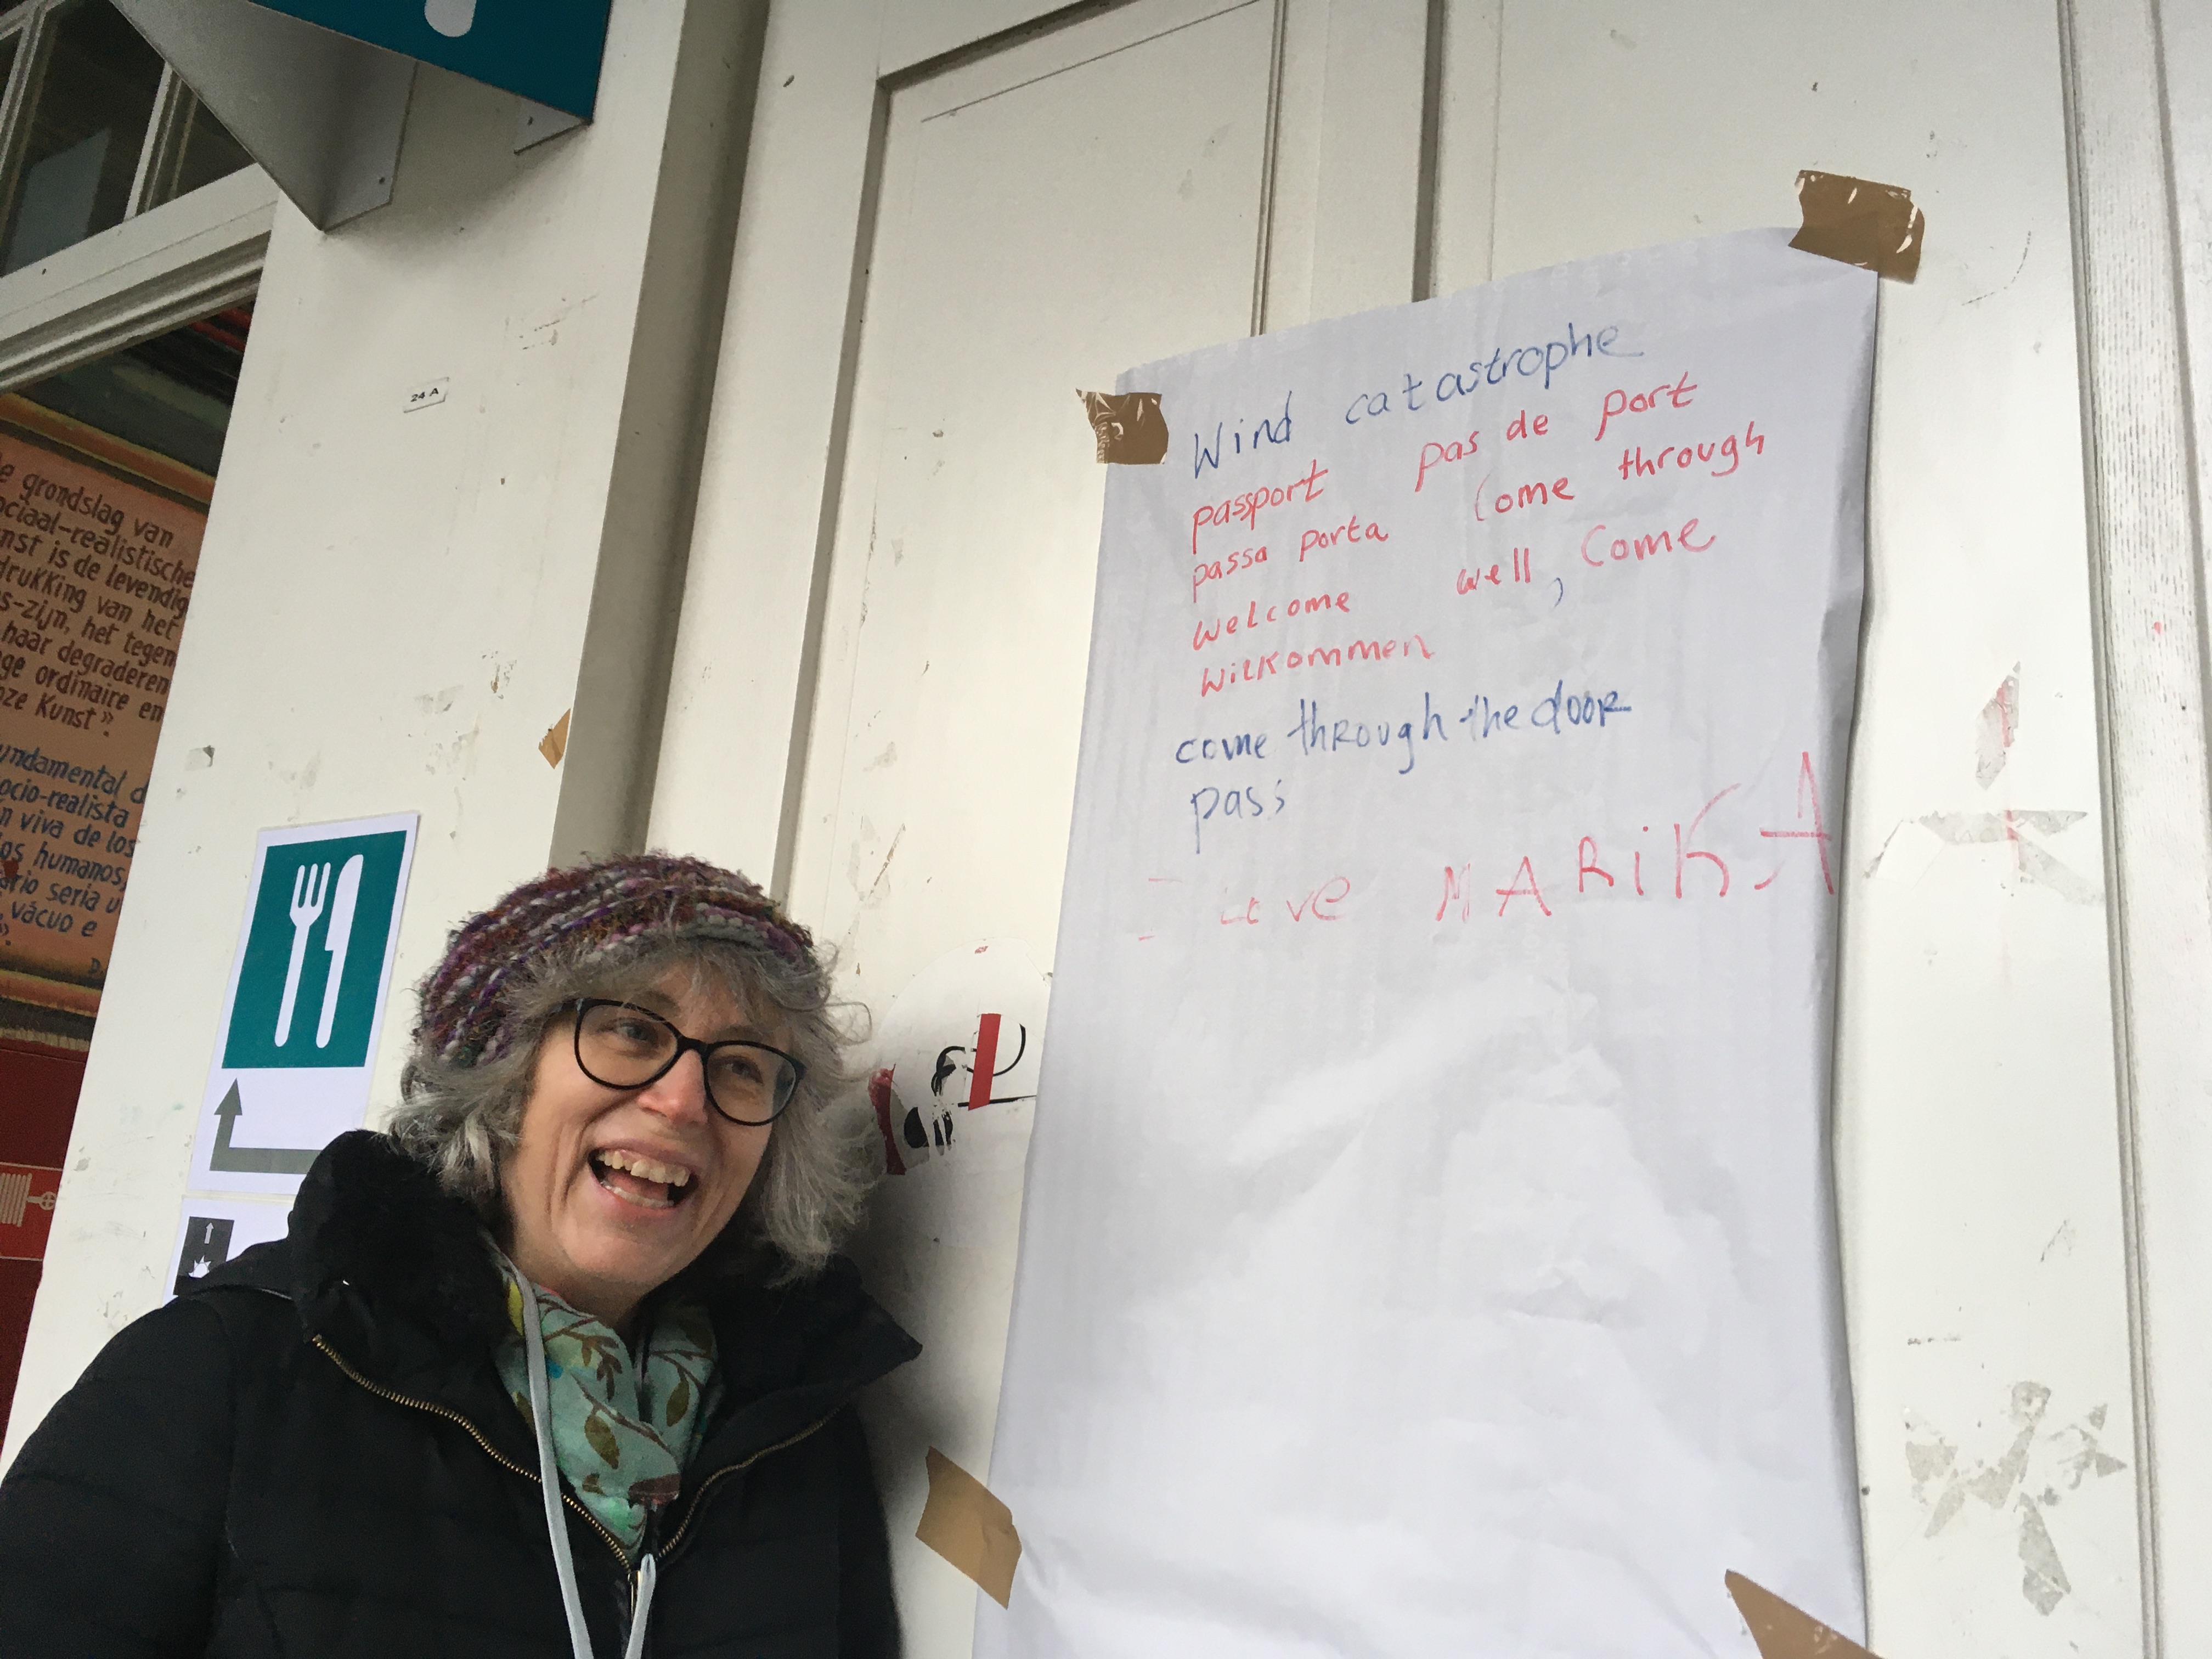 Wind catastrophe
passport pas de port
passa porta Come through
welcome well, Come
Wilkommen
come through the door
pass
MARiKA
24 A
grondslag van
sociaal-realistische
is de levendig
van het
s-zijn, het tegen
haar degraderen
ordinaire en
Kunst".
undamental d
ocio-realista
n viva de los
os humanos,
ario seria u
vácuo e